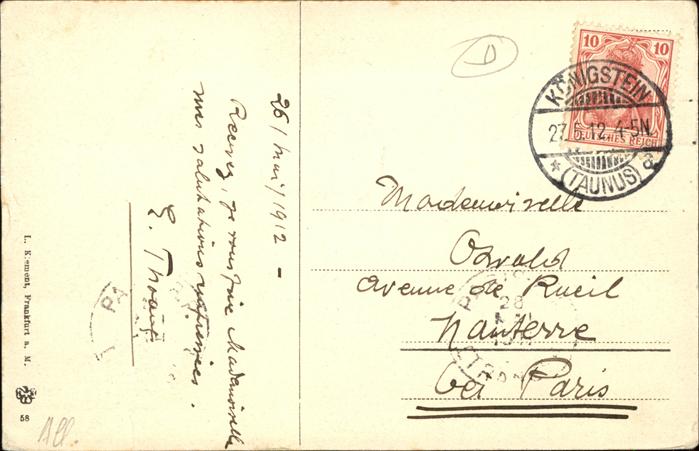 26/mai/1912 -
Recevez, je vous prie Mademoiselle
mes salutations
E.
Mademoiselle
Oswald
Avenue de Rueil
Nanterre
bei Paris
10 10
DEUTSCHES REICH
KÖNIGSTEIN
27.5.12.4-5N.
* (TAUNUS) a
PA
28
ETR
L. Klement, Frankfurt a. M.
58
All.
D